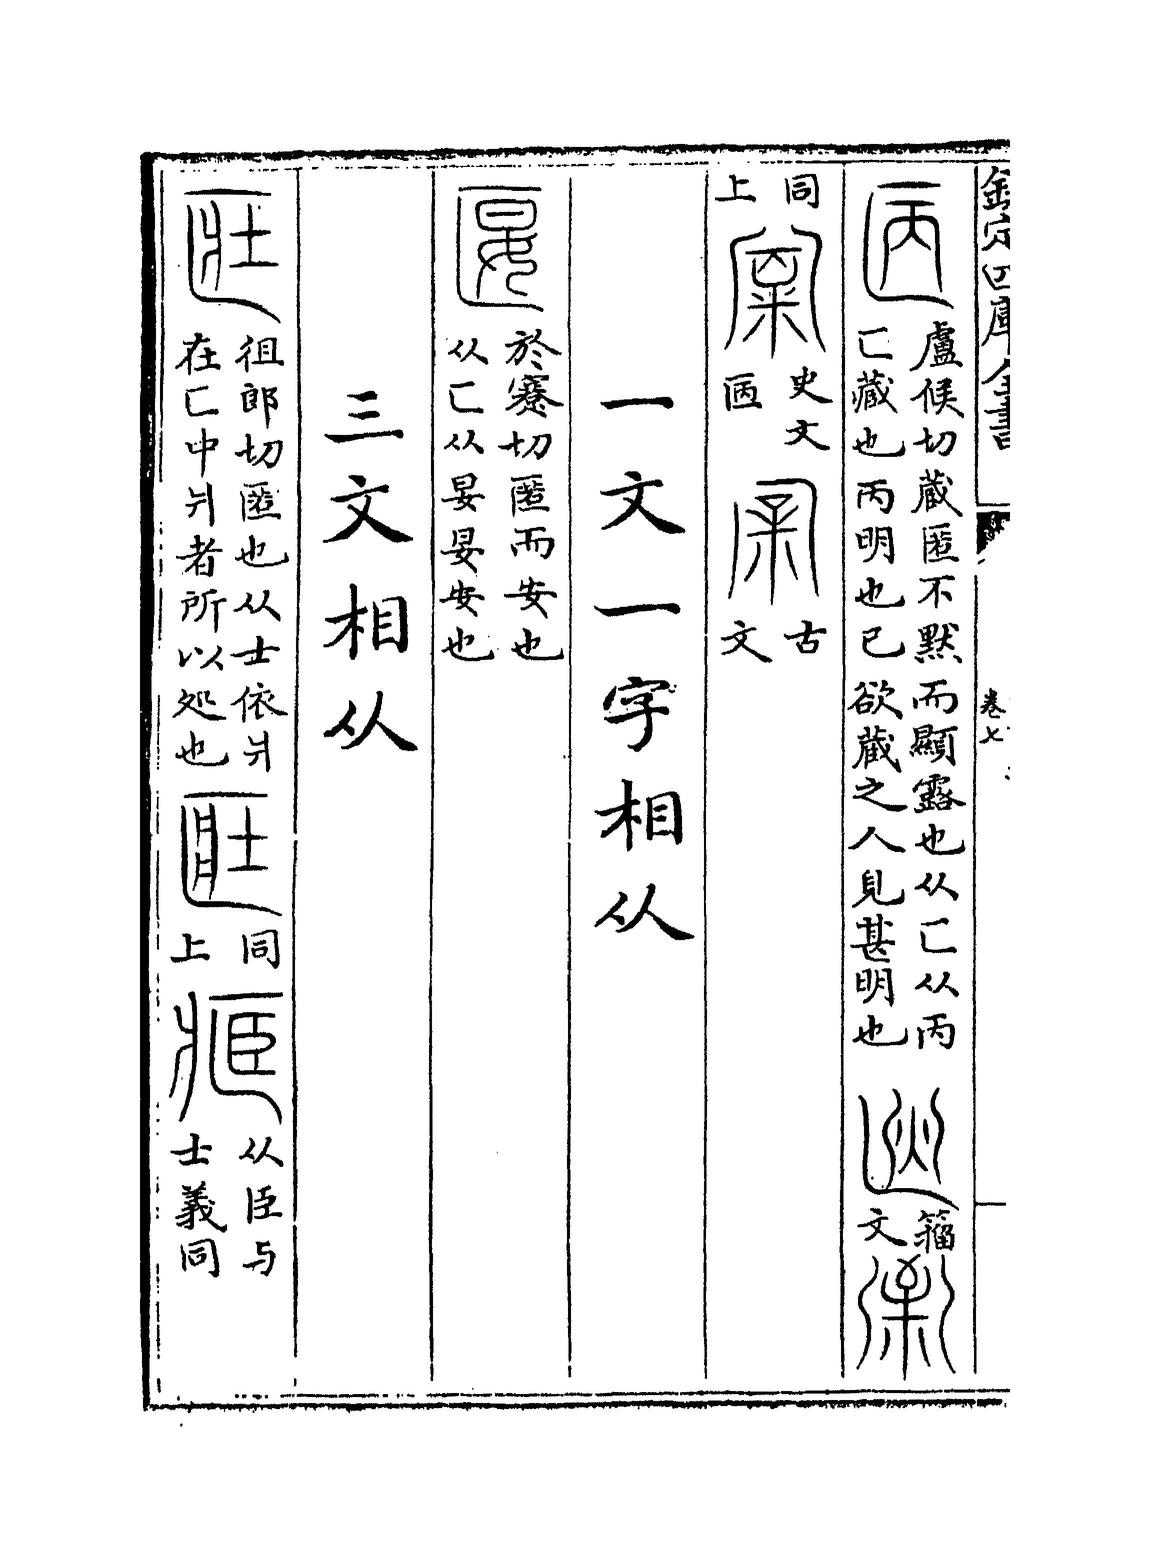 欽定四庫全書
卷七
盧候切蔵匿不黙而顯露也从匸从丙
匸藏也丙明也已欲蔵之人見甚明也
籀文
同上
史文
古文
一文一字相从
於蹇切匿而安也
从匸从晏晏安也
三文相从
徂郎切匿也从士依爿
在匸中爿者所以処也
同上
从臣与
士義同